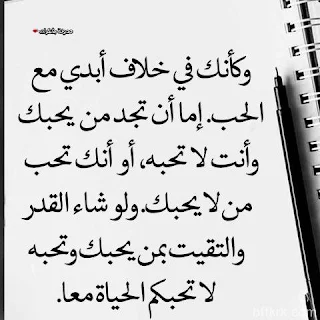 وكأنك في خلاف أبدي مع
الحب. إما أن تجد من يحبك
وأنت لا تحبه، أو أنك تحب
من لا يحبك. ولو شاء القدر
والتقيت بمن يحبك وتحبه
لا تحبكم الحياة معا.